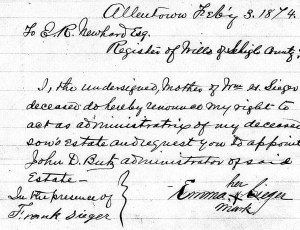 Allentown Feb'y 3. 1874.
To E. R. Newhard Esq.
Register of Wills of Lehigh County:
I, the undersigned, Mother of Wm H. Sieger
deceased do hereby renounce my right to
act as administratrix of my deceased
son's estate and request you to appoint
John D. Burk administrator of said
Estate—
In the presence of
Frank Sieger
her
Emma X Sieger
mark